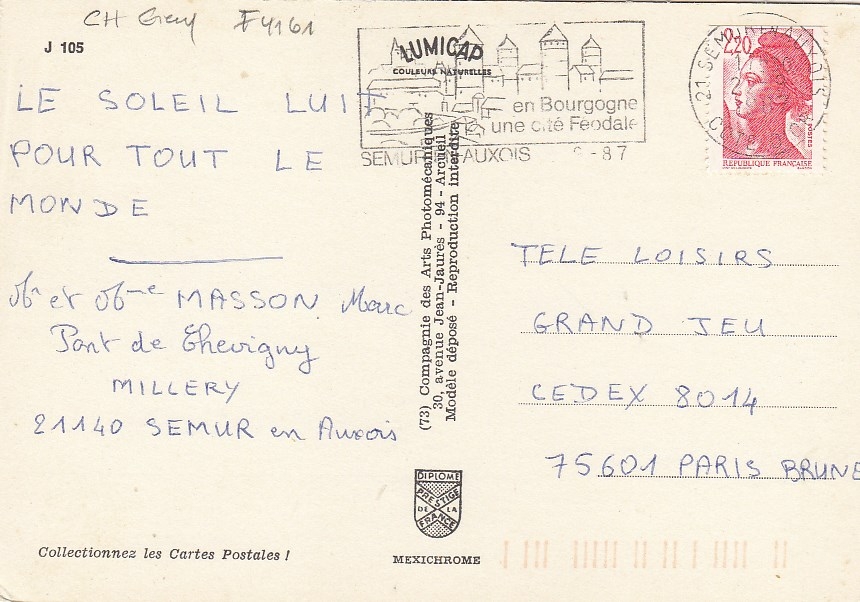 CH Gray F4161
J 105
LE SOLEIL LUIT
POUR TOUT LE
MONDE
Mr et Mme MASSON Marc
Pont de Chevigny
MILLERY
21140 SEMUR en Auxois
Collectionnez les Cartes Postales !
LUMICAP
COULEURS NATURELLES
en Bourgogne
une cité Féodale
SEMUR EN AUXOIS -87
(73) Compagnie des Arts Photomécaniques
30, avenue Jean-Jaurès - 94 - Arcueil
Modèle déposé - Reproduction interdite
DIPLOME
PRESTIGE
DE LA
FRANCE
MEXICHROME
21 SEMUR EN AUXOIS
2,20
POSTES
REPUBLIQUE FRANÇAISE
TELE LOISIRS
GRAND JEU
CEDEX 8014
75601 PARIS BRUNE